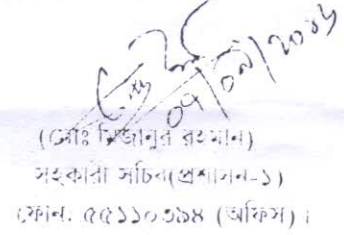 (মোঃ মিজানুর রহমান)
সহকারী সচিব(প্রশাসন-১)
ফোন: ৫৫১১০৩৯৪ (অফিস)।